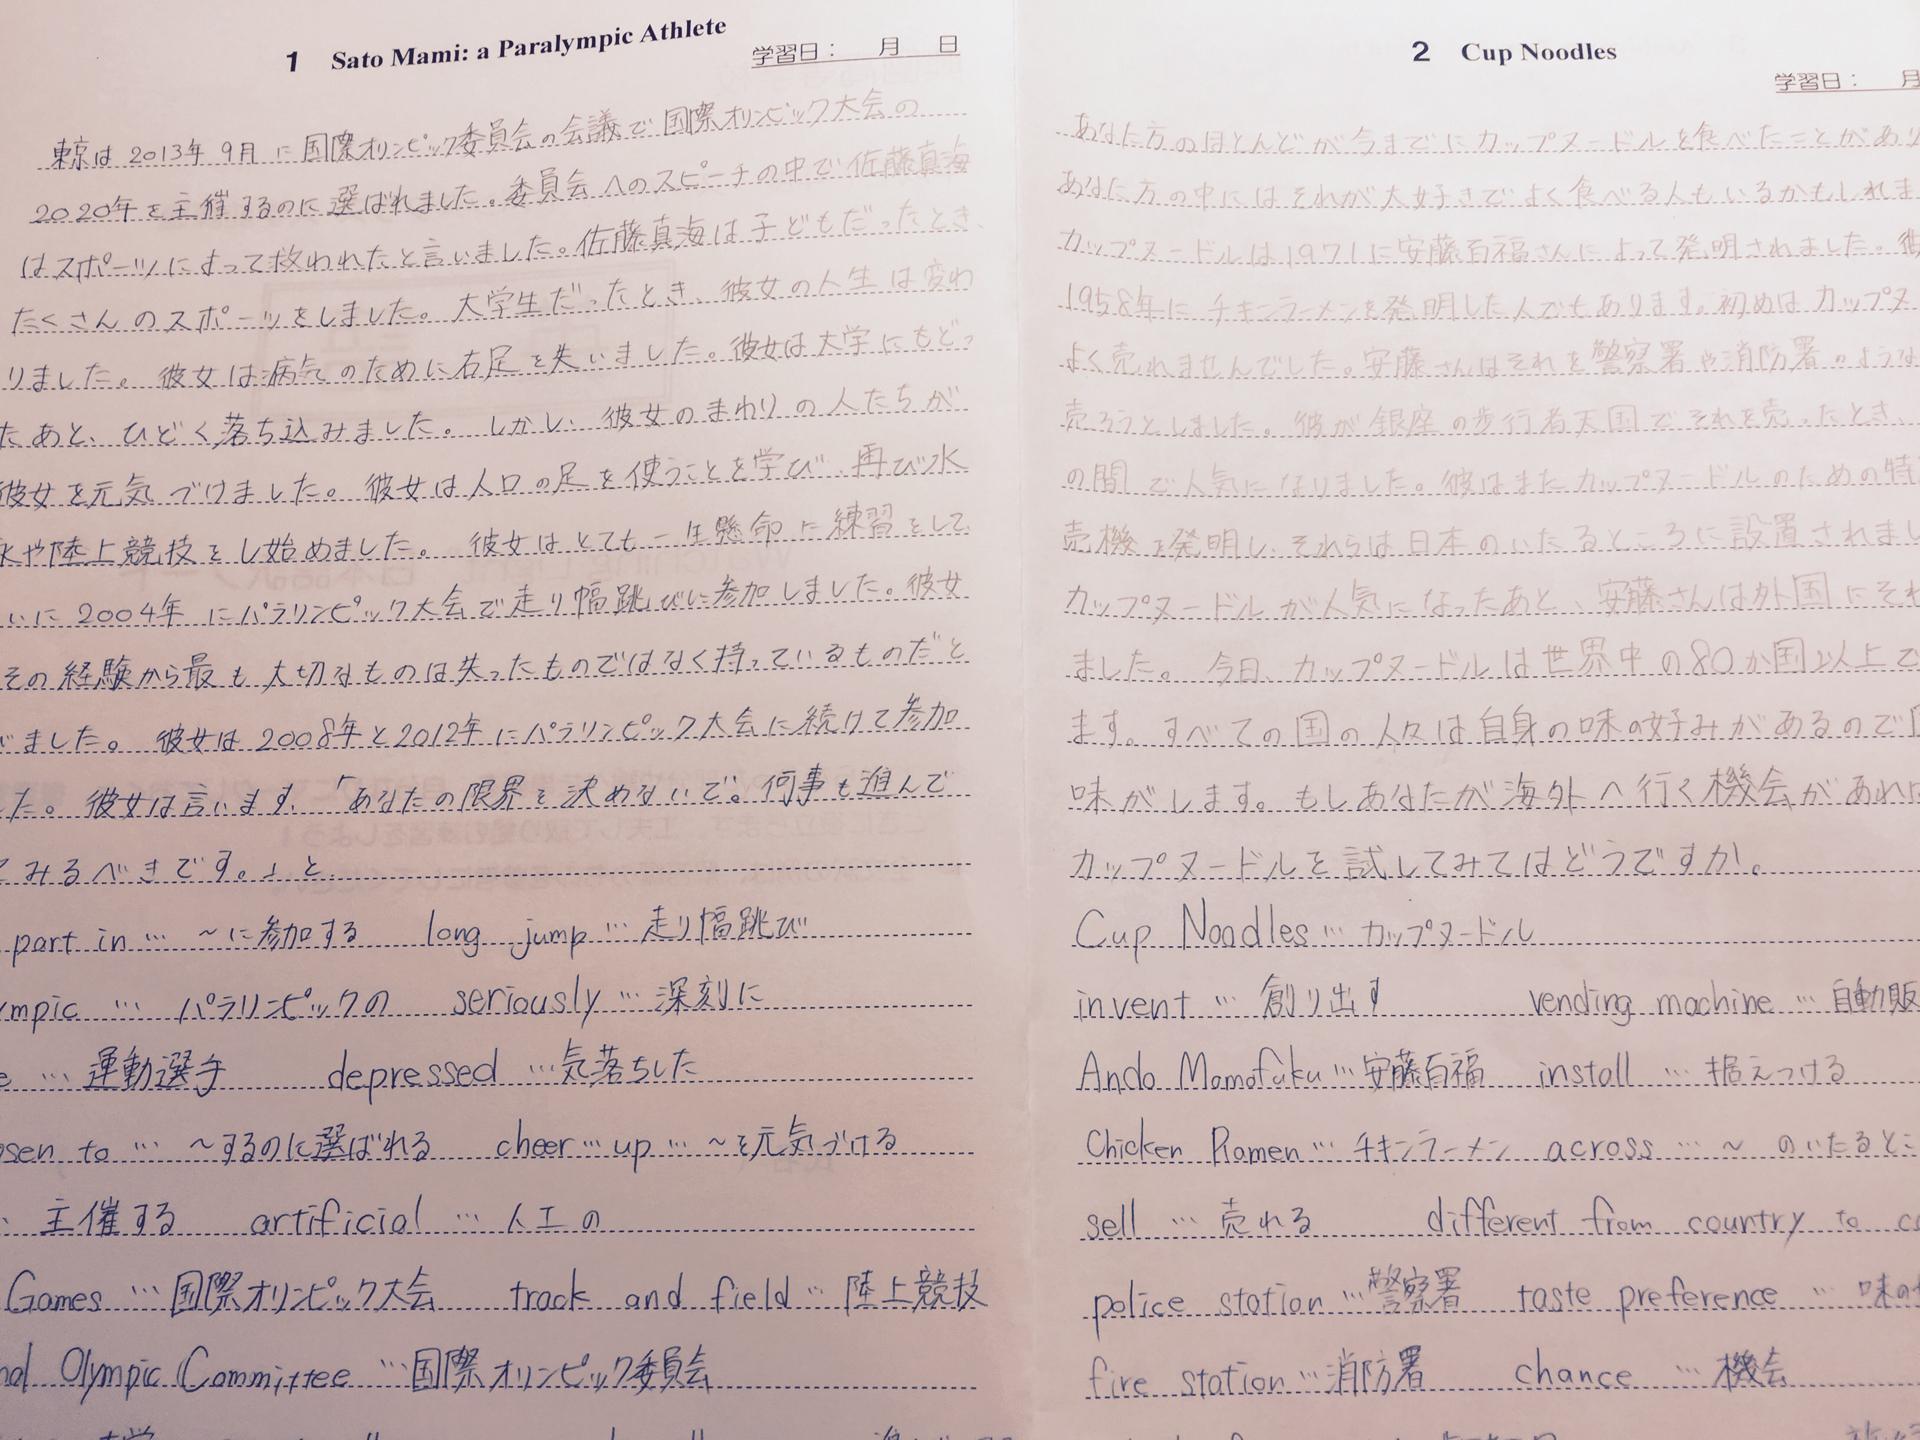 1 Sato Mami: a Paralympic Athlete
学習日： 月 日
東京は2013年9月に国際オリンピック委員会の会議で国際オリンピック大会の
2020年を主催するのに選ばれました。委員会へのスピーチの中で佐藤真海
はスポーツによって救われたと言いました。佐藤真海は子どもだったとき、
たくさんのスポーツをしました。大学生だったとき、彼女の人生は変わ
りました。彼女は病気のために右足を失いました。彼女は大学にもどっ
たあと、ひどく落ち込みました。しかし、彼女のまわりの人たちが
彼女を元気づけました。彼女は人口の足を使うことを学び、再び水
泳や陸上競技をし始めました。彼女はとても一生懸命に練習をして、
いに2004年にパラリンピック大会で走り幅跳びに参加しました。彼女
その経験から最も大切なものは失ったものではなく持っているものだと
びました。彼女は2008年と2012年にパラリンピック大会に続けて参加
した。彼女は言います、「あなたの限界を決めないで。何事も進んで
てみるべきです。」と.
part in … ～に参加する long jump … 走り幅跳び
ympic … パラリンピックの seriously … 深刻に
e … 運動選手 depressed … 気落ちした
osen to … ～するのに選ばれる cheer … up … ～を元気づける
… 主催する artificial … 人工の
Games … 国際オリンピック大会 track and field … 陸上競技
nal Olympic Committee … 国際オリンピック委員会
2 Cup Noodles
学習日： 月
あなた方のほとんどが今までにカップヌードルを食べたことがあり
あなた方の中にはそれが大好きでよく食べる人もいるかもしれま
カップヌードルは1971に安藤百福さんによって発明されました。彼
1958年にチキンラーメンを発明した人でもあります。初めはカップヌ
よく売れませんでした。安藤さんはそれを警察署や消防署のような
売ろうとしました。彼が銀座の歩行者天国でそれを売ったとき、
の間で人気になりました。彼はまたカップヌードルのための特
売機を発明し、それらは日本のいたるところに設置されまし
カップヌードルが人気になったあと、安藤さんは外国にそれ
ました。今日、カップヌードルは世界中の80か国以上で
ます。すべての国の人々は自身の味の好みがあるので
味がします。もしあなたが海外へ行く機会があれば
カップヌードルを試してみてはどうですか。
Cup Noodles … カップヌードル
invent … 創り出す vending machine … 自動販
Ando Momofuku … 安藤百福 install … 据えつける
Chicken Ramen … チキンラーメン across … ～のいたるとこ
sell … 売れる different from country to co
police station … 警察署 taste preference … 味の
fire station … 消防署 chance … 機会